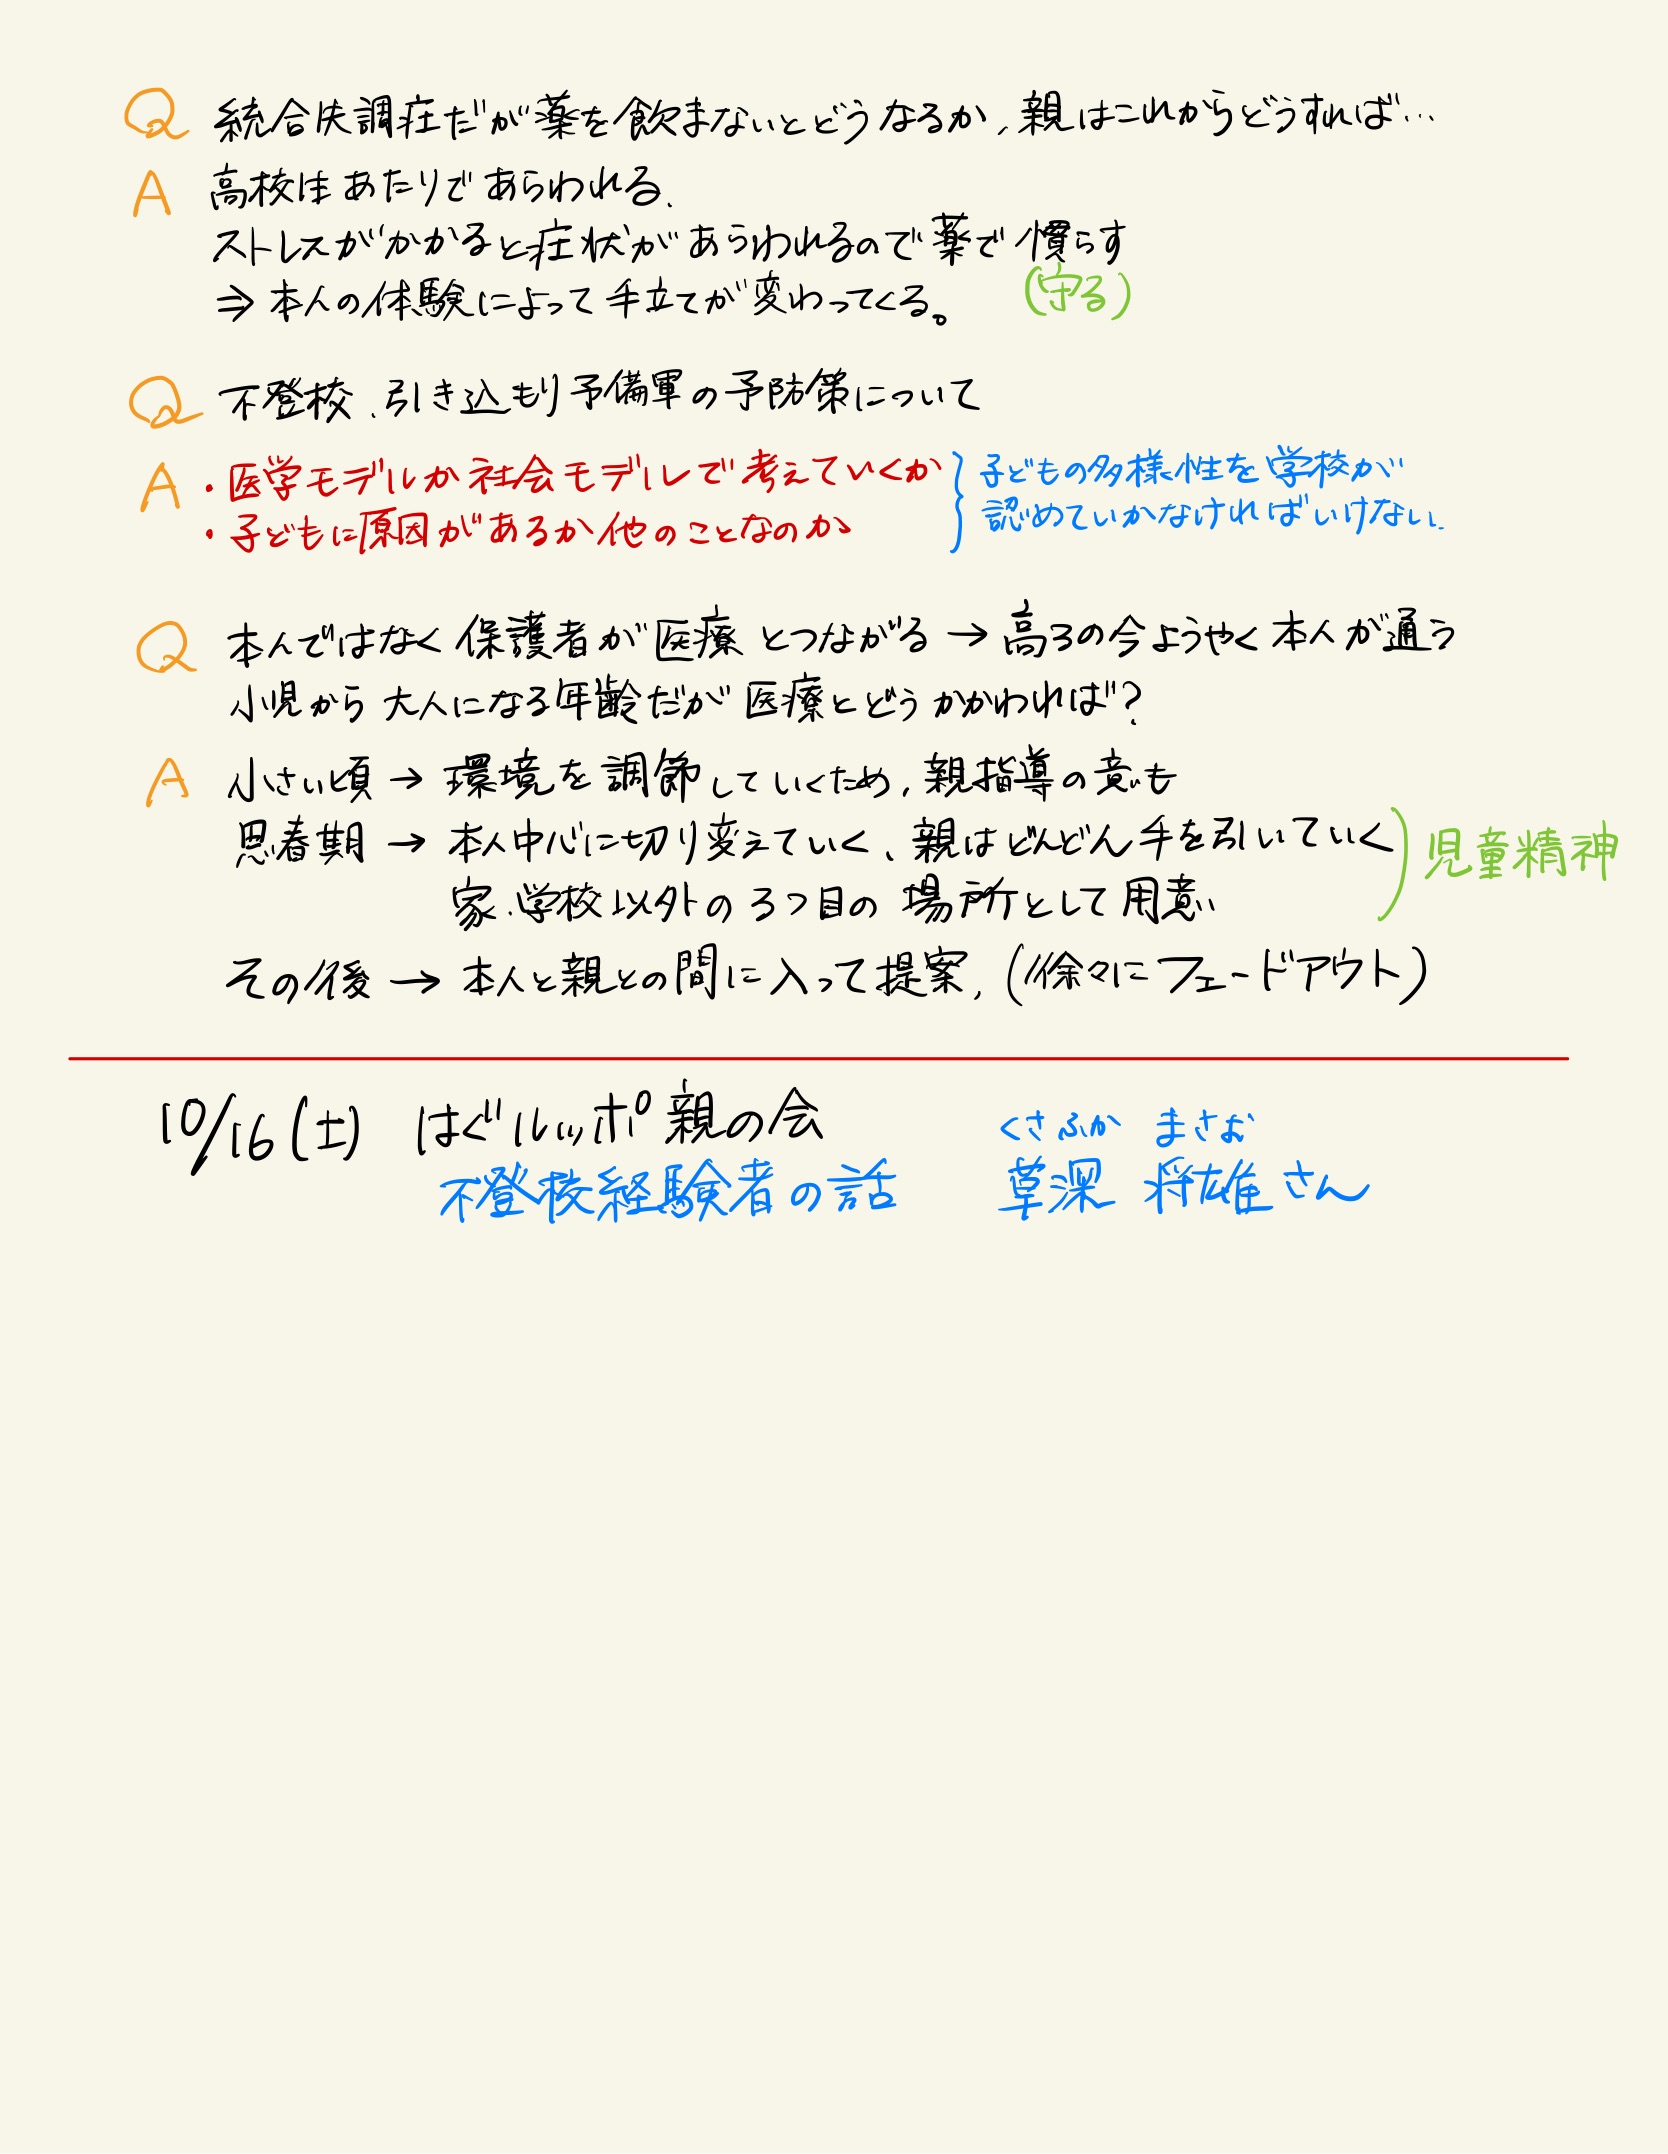 Q 統合失調症だが薬を飲まないとどうなるか、親はこれからどうすれば…
A 高校生あたりであらわれる、
ストレスがかかると症状があらわれるので薬で慣らす
(守る)
⇒ 本人の体験によって手立てが変わってくる。
Q 不登校、引き込もり予備軍の予防策について
A ・医学モデルか社会モデルで考えていくか
・子どもに原因があるか他のことなのか
子どもの多様性を学校が
認めていかなければいけない、
Q 本人ではなく保護者が医療とつながる → 高3の今ようやく本人が通う
小児から大人になる年齢だが医療とどうかかわれば?
A 小さい頃 → 環境を調節していくため、親指導の意も
思春期 → 本人中心に切り変えていく、親はどんどん手を引いていく
家、学校以外の3つ目の場所として用意
児童精神
その後 → 本人と親との間に入って提案、(徐々にフェードアウト)
10/16(土) はぐルッポ親の会
くさふか まさお
不登校経験者の話 草深 将雄さん